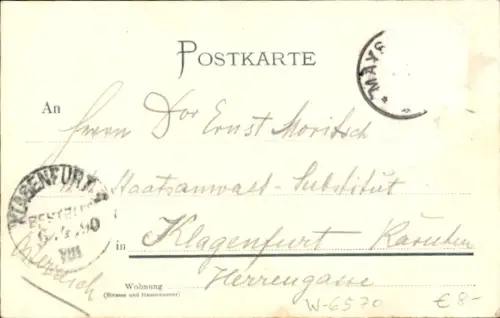 POSTKARTE
MAYR
An
Herrn Dor Ernst Moritsch
Staatsanwalt-Substitut
KLAGENFURT
BESTELLT
90
VIII
in Klagenfurt Kärnten
Österreich
Wohnung Herrengasse
(Strasse und Hausnummer)
W-6570 €8-